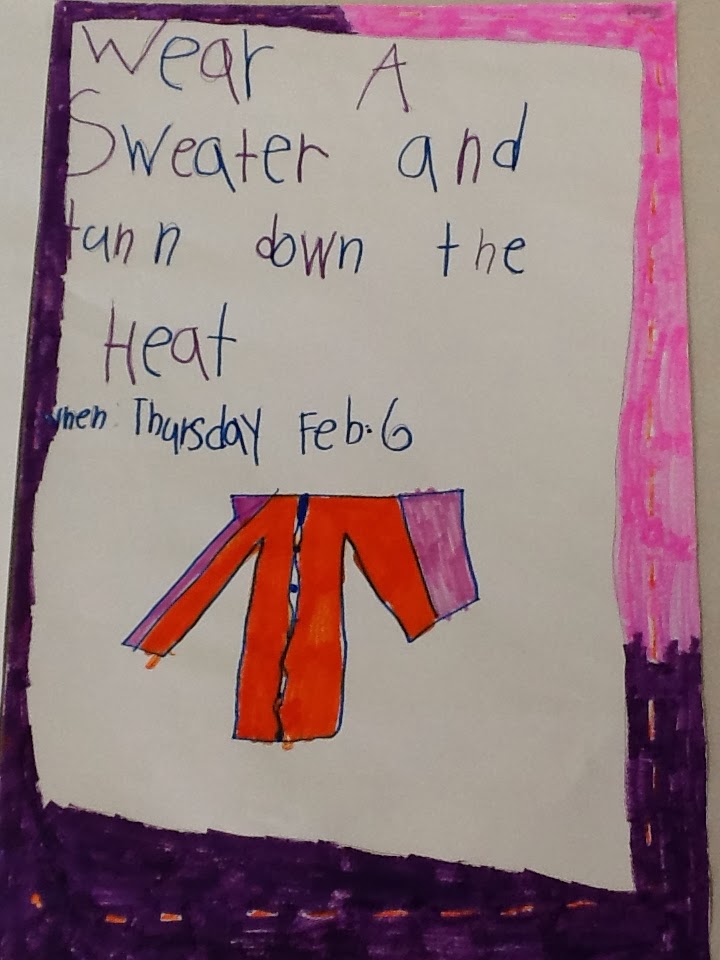 Wear A
Sweater and
tunn down the
Heat
when Thursday Feb. 6